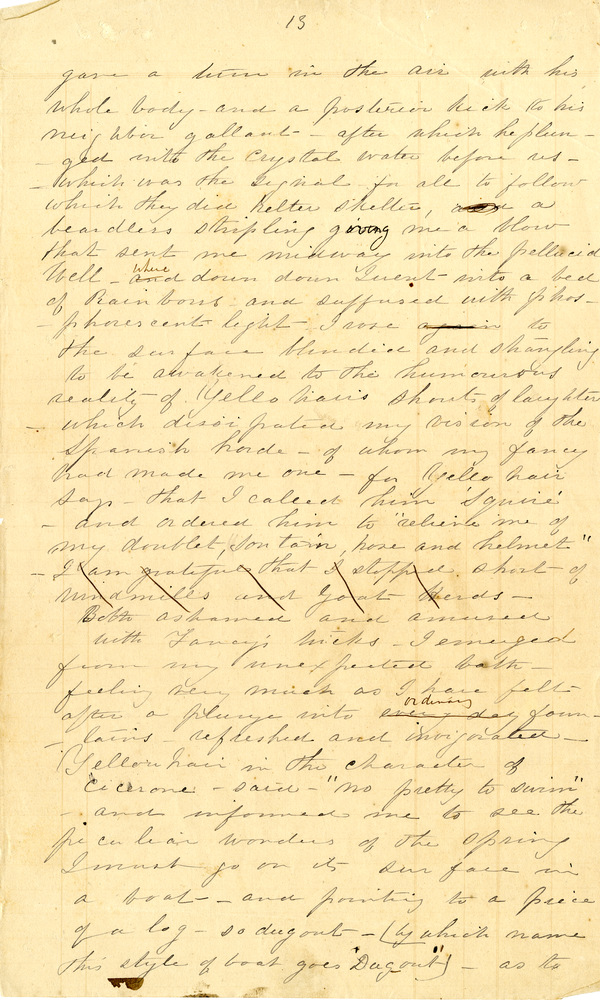 13
gave a turn in the air with his
whole body - and a posterior kick to his
neighbor gallant - after which he plun-
-ged into the crystal water before us -
- which was the signal for all to follow
which they did helter skelter, and a
beardless stripling giving me a blow
that sent me midway into the pellucid
Well - and where down down I went into a bed
of Rainbows and suffused with phos-
-phorescent light - I rose again to
the surface blinded and strangling
to be awakened to the humourous
reality of Yello hair's shouts of laughter
- which dissipated my vision of the
Spanish horde - of whom my fancy
had made me one - for Yello hair
says - that I called him 'Squire'
- and ordered him to "relieve me of
my doublet, hose and helmet"
- I am grateful that I stopped short of
windmills and Goat Herds -
Both ashamed and amused
with Fancy's tricks - I emerged
from my unexpected bath -
feeling very much as I have felt
after a plunge into every day ordinary foun-
-tains - refreshed and invigorated -
Yellow hair in the character of
Cicerone - said - "no pretty to swim"
- and informed me to see the
peculiar wonders of the Spring
I must go on its surface in
a boat - and pointing to a piece
of a log - so dugout - (by which name
this style of boat goes "Dugout") - as to